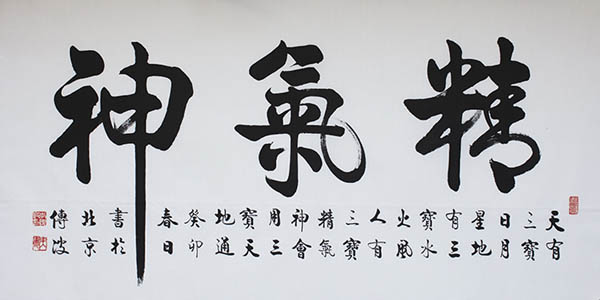 精氣神
天有
三寶
日月
星地
有三
寶水
火風
人有
三寶
精氣
神會
用三
寶天
地通
癸卯
春日
書於
北京
傳波